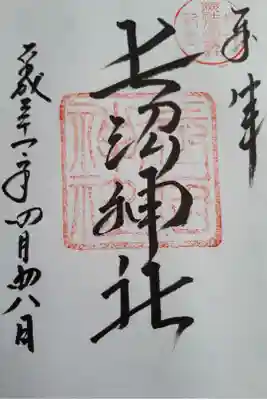 奉拝
長沼神社
平成三十一年四月廿八日